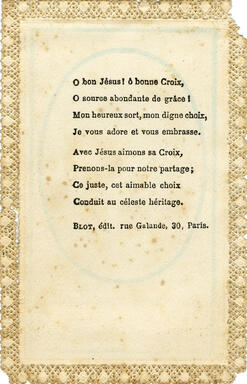 O bon Jésus! ô bonne Croix,
O source abondante de grâce!
Mon heureux sort, mon digne choix,
Je vous adore et vous embrasse.
Avec Jésus aimons sa Croix,
Prenons-la pour notre partage;
Ce juste, cet aimable choix
Conduit au céleste héritage.
BLOT, édit. rue Galande, 30, Paris.